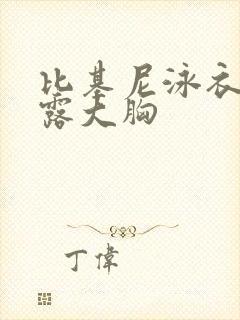 比基尼泳衣
露大胸
丁偉